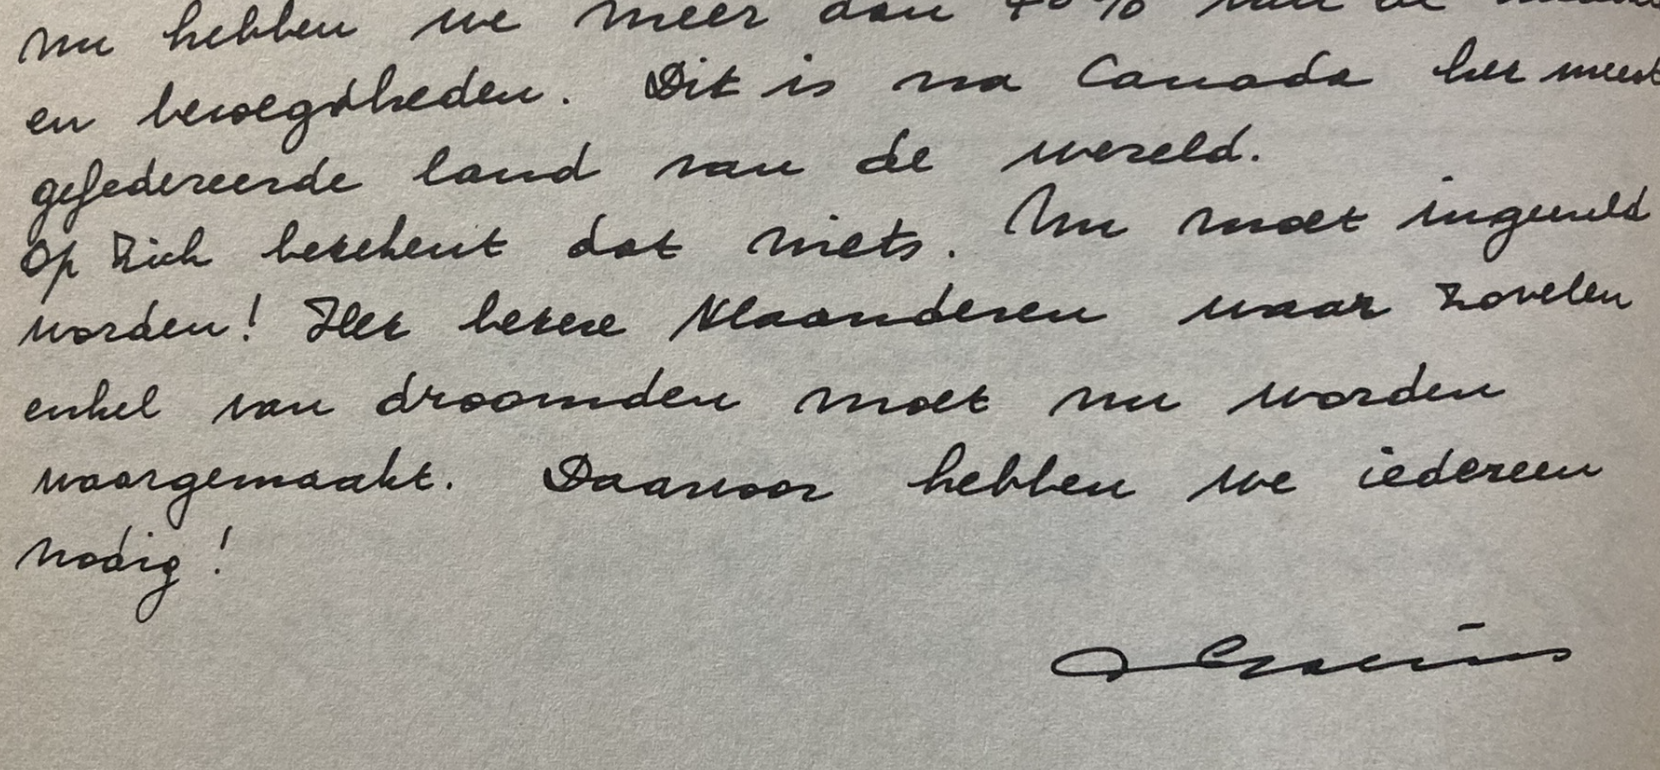 Nu hebben we meer dan 40% van de
en bevoegdheden. Dit is na Canada het meest
gefedereerde land van de wereld.
Op zich betekent dat niets. Nu moet ingevuld
worden! Het betere Vlaanderen waar zovelen
enkel van droomden moet nu worden
waargemaakt. Daarvoor hebben we iedereen
nodig!